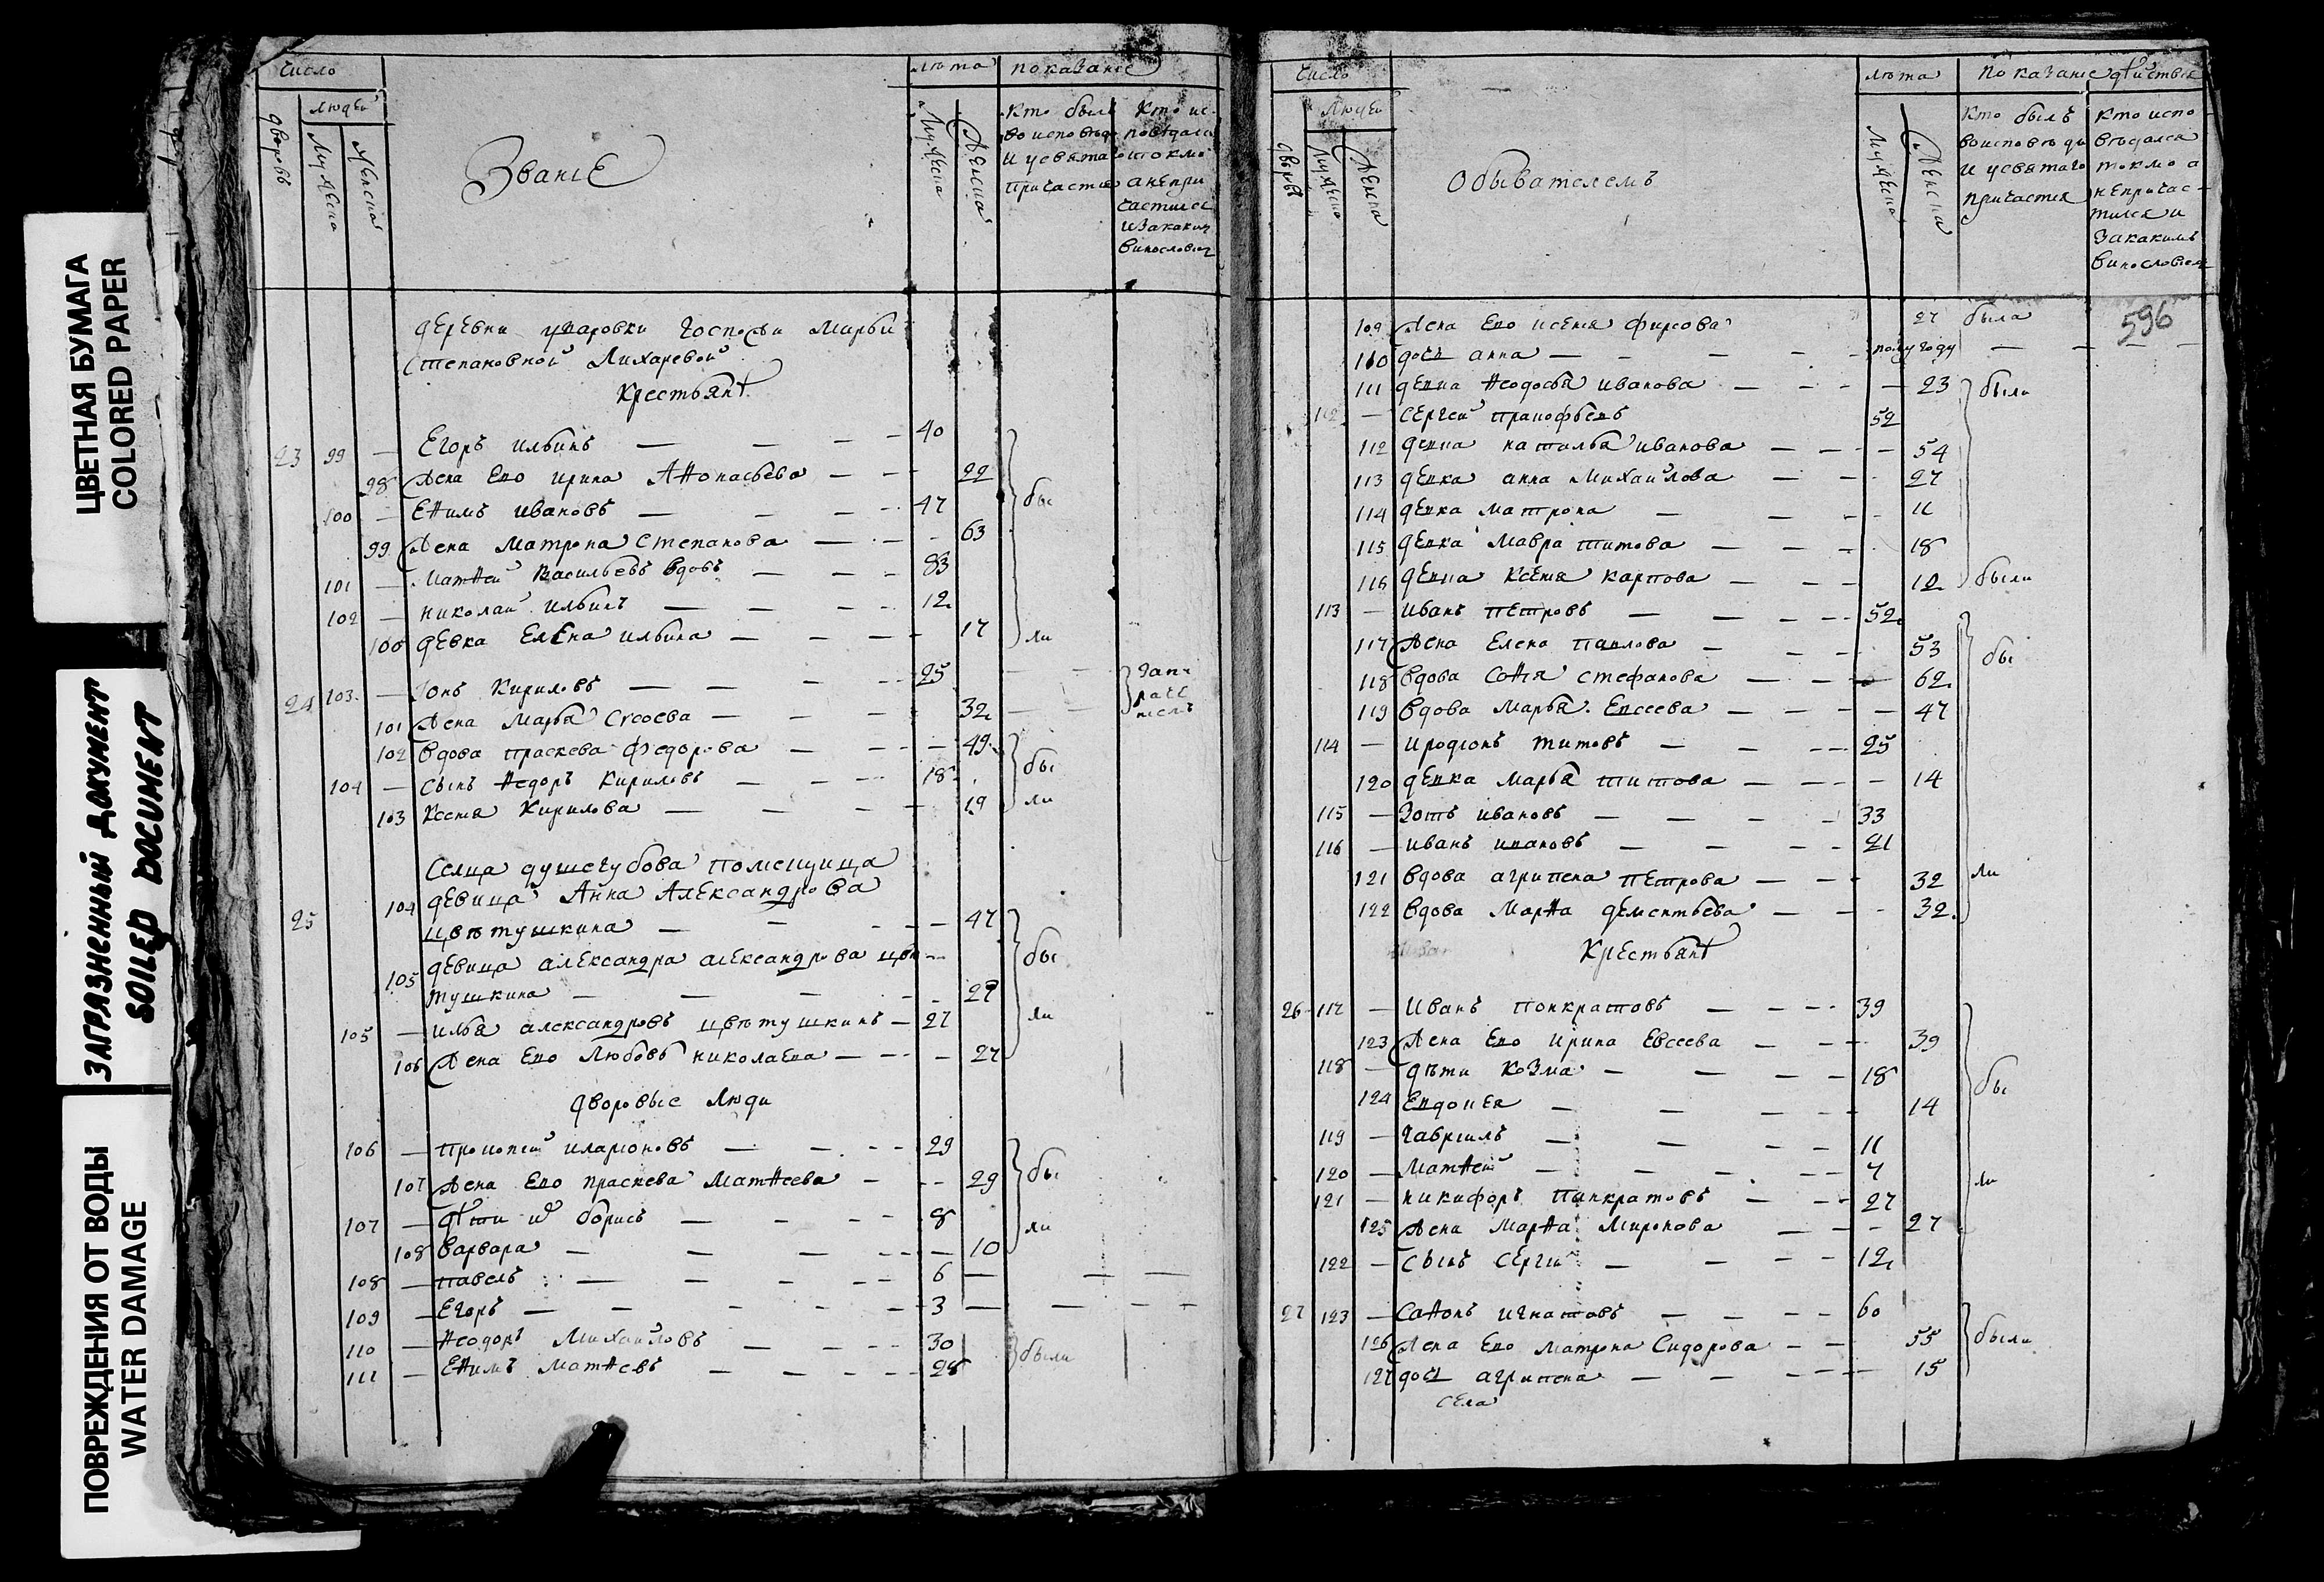 ЦВЕТНАЯ БУМАГА
COLORED PAPER
ЗАГРЯЗНЕННЫЙ ДОКУМЕНТ
SOILED DOCUMENT
ПОВРЕЖДЕНИЯ ОТ ВОДЫ
WATER DAMAGE
число
людей
дворовъ
мужеска
женска
Званіе
лѣта
мужеска
женска
показаніе
Кто былъ
во исповѣди
и у святаго
причастия
Кто ис-
поведалс
токмо
а непри
частилс
и за каким
винословіем
деревни госпожи Марьи
Степановной Лихаревой
Крестьянѣ
23 99 — Егоръ Ильинъ — 40
98 жена ево Ирина Аѳонасьева — 22
бы
100 — Еѳимъ Ивановъ — 47
99 жена Матрена Степанова — 63
101 — Матѳей Васильевъ вдовъ — 83
102 — Николай Ильинъ — 12
100 девка Елена Ильина — 17
ли
24 103 — Іонъ Кириловъ — 25
101 жена Марья Сисоева — 32
102 вдова Праскева Федорова — 49
104 — сынъ Ѳедоръ Кириловъ — 18
бы
103 Ксения Кирилова — 19
ли
Селца Душегубова помещица
25 104 девица Анна Александрова
Цвѣтушкина — 47
105 девица Александра Александрова Цвѣ
тушкина — 27
бы
105 — Илья Александровъ Цвѣтушкинъ — 27
ли
106 жена ево Любовь Николаева — 27
дворовые люди
106 — Прокопей Иларіоновъ — 29
107 жена ево Праскева Матѳеева — 29
бы
107 — дѣти и Борисъ — 8
ли
108 Варвара — 10
108 — Павелъ — 6
109 — Егоръ — 3
110 — Ѳеодоръ Михайловъ — 30
были
111 — Еѳимъ Матѳевъ — 28
число
людей
дворовъ
мужеска
женска
Обывателемъ
лѣта
мужеска
женска
показаніе дѣйствія
Кто былъ
во исповѣди
и у святаго
причастия
Кто испо
вѣдался
токмо а
непричас-
тился и
за какимъ
винословіемъ
596
109 жена ево Ксения Фирсова 27 была
110 дочь Анна — полугоду
111 девка Ѳеодосья Иванова — 23 были
112 — Сергей 52
112 девка Наталья Иванова — 54
113 девка Анна Михайлова — 27
114 девка Матрона — 11
115 девка Мавра Титова — 18
116 девка Ксения Карпова — 12 были
113 — Иванъ Петровъ — 52
117 жена Елена Павлова — 53
бы
118 вдова Софія Стефанова — 62
119 вдова Марья Евсеева — 47
114 — Иродіонъ Титовъ — 25
120 девка Марья Титова — 14
115 — Зотъ Ивановъ — 33
116 — Иванъ Ивановъ — 21
121 вдова Агрипена Петрова — 32
ли
122 вдова Марѳа Дементьева — 32
Крестьянѣ
26 117 — Иванъ Понкратовъ — 39
123 жена ево Ирина Евсеева — 39
118 — дѣти Козма — 18
бы
124 Евдокея — 14
119 — Гавріилъ — 11
120 — Матѳей — 7
121 — Никифоръ Панкратовъ — 27
ли
125 жена Марѳа Миронова — 27
122 — сынъ Сергій — 12
27 123 — Саѳонъ Игнатовъ — 60
126 жена ево Матрена Сидорова — 55 были
127 дочь Агрипена — 15
села